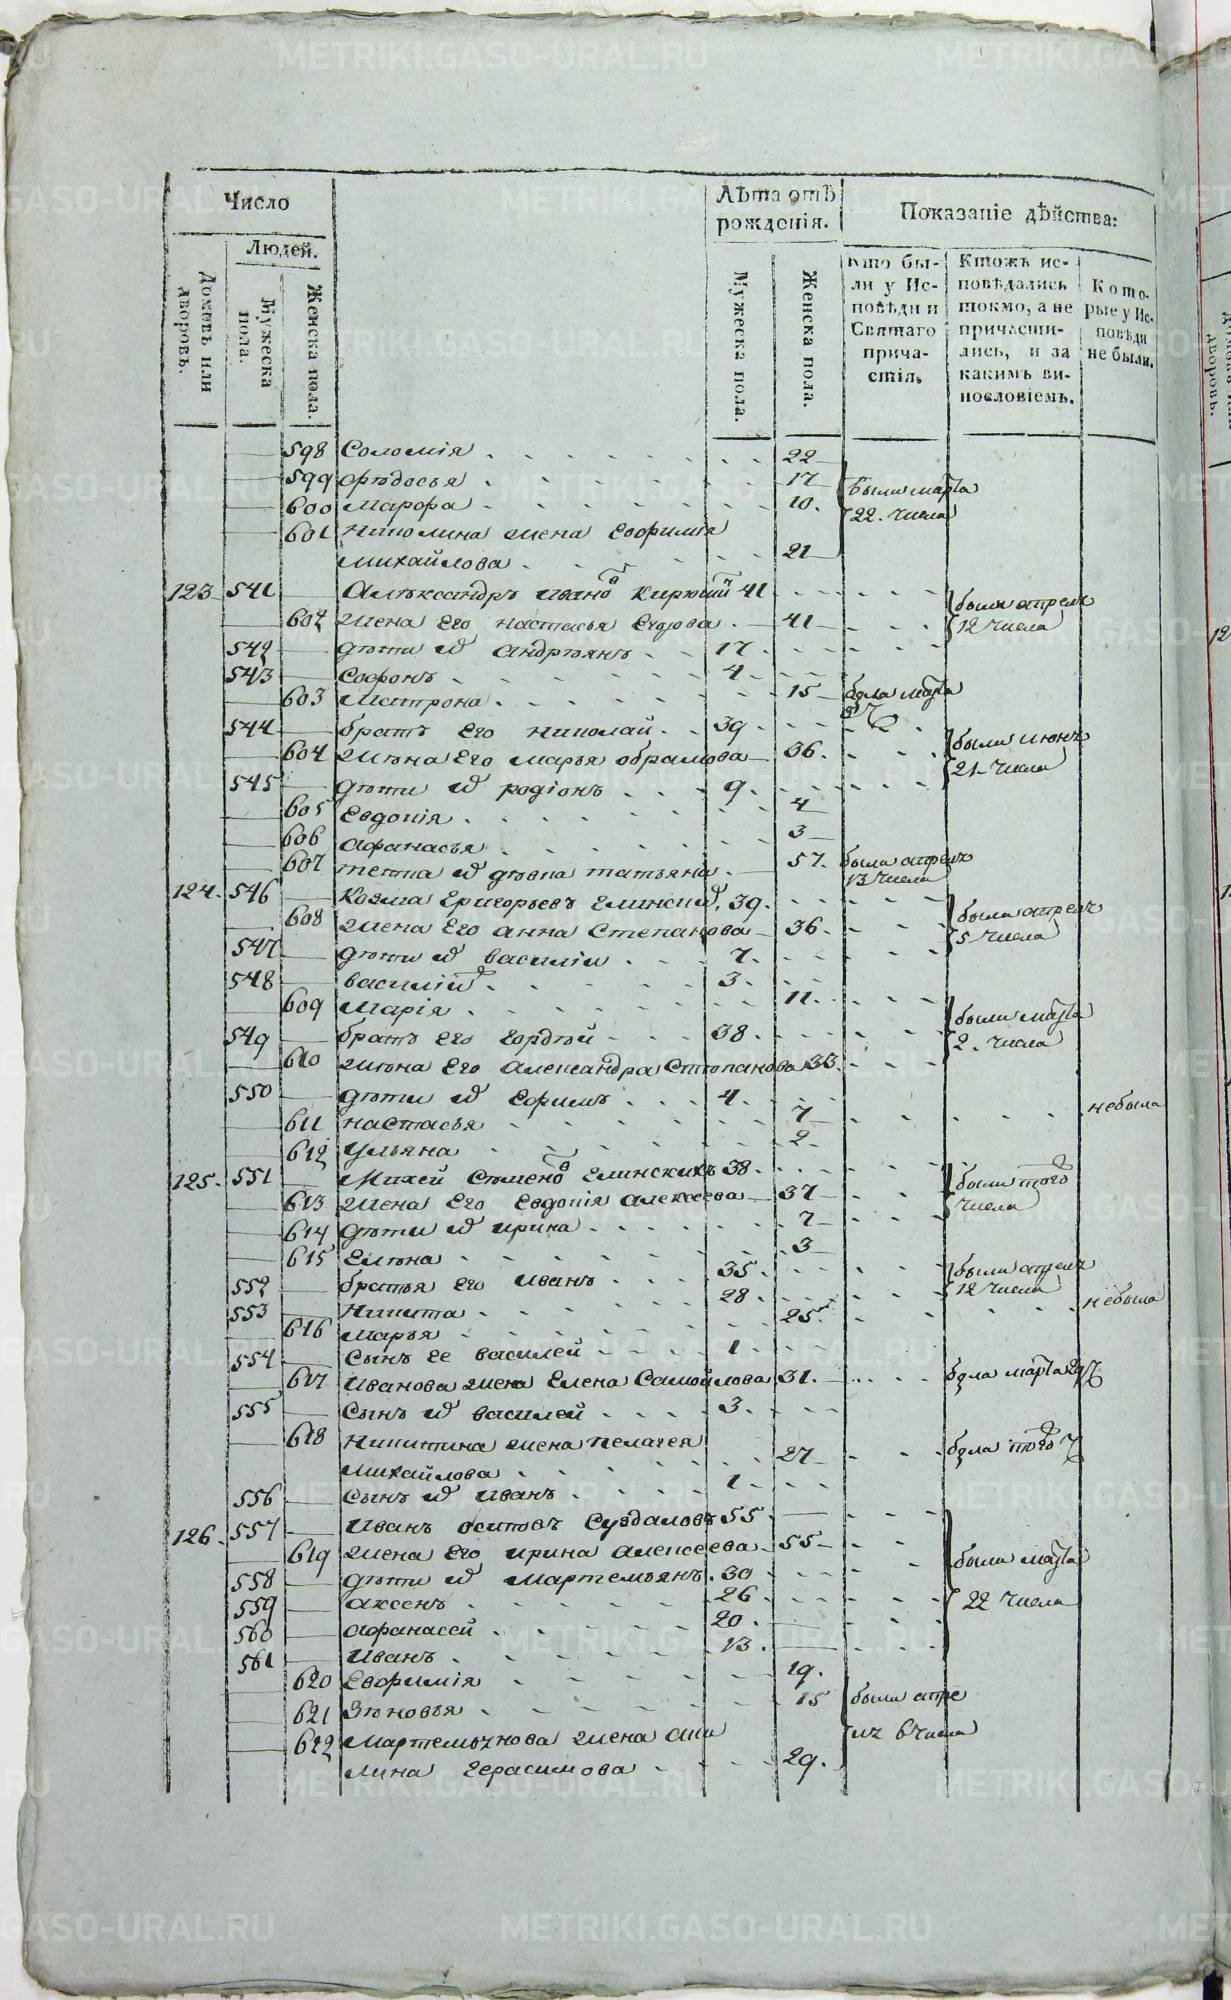 Число
Лѣта отъ
рожденія.
Показаніе дѣйства:
Людей.
Домовъ или
дворовъ.
Мужеска
пола.
Женска пола.
Мужеска пола.
Женска пола.
Кто бы-
ли у Ис-
повѣди и
Святаго
прича-
стія.
Ктожъ ис-
повѣдались
токмо, а не
причасти-
лись, и за
какимъ ви-
нословіемъ.
Кото-
рые у Ис-
повѣди
не были.
598 Соломія 22
599 Ѳѣдосья 17 были марта
600 Марфа 10. 22. числа
601 жена Евфимія
Михайлова 21
123 541 Алѣксандръ Ивановъ 41 были апреля
602 жена Его настасья Егорова 41 12 числа
542 дѣти ихъ Андрѣянъ 17
543 Софонъ 4
603 Матрона 15 была марта
544 братъ Его николай 39 были июня
604 жѣна Его марья обрамова 36. 21 числа
545 дѣти ихъ родіонъ 9
605 Евдокія 4
606 афанасья 3
607 тетка ихъ дѣвка татьяна 57. была апреля
13 числа
124. 546 Козма Григорьевъ Елинскихъ 39. были апреля
608 жена Его анна Степанова 36. 5 числа
547 дѣти ихъ василіи 7.
548 василій 3.
609 Марія 11. были марта
549 братъ его гордѣй 38. 2. числа
610 жѣна Его Александра Стѣпанова 33.
550 дѣти ихъ Ефимъ 4.
611 настасья 7 небыла
612 Ульяна 2
125. 551 Михей Сѣменовъ Елинскихъ 38. были того
613 жена Его Евдокія алексеева 37 числа
614 дѣти ихъ ирина 7
615 Елѣна 3
552 братья его Иванъ 35. были апреля
553 Никита 28 12 числа
616 Марья 25 небыла
554 Сынъ ее василей 1
617 Иванова жена Елена Самойлова 31. была марта 29
555 Сынъ ихъ василей 3.
618 Никитина жена пелагея была того
Михайлова 27
556 Сынъ ихъ Иванъ 1
126. 557 Иванъ осиповъ Суздаловъ 55
619 жена Его ирина Алексеева 55 были марта
558 дѣти ихъ Мартемьянъ. 30
559 аксенъ 26 22 числа
560 афанасей 20
561 Иванъ 13.
620 Евфимія 19.
621 Зѣновья 15 были апре
622 Мартемьянова жена аку ля 6 числа
лина Герасимова 29.
METRIKI.GASO-URAL.RU